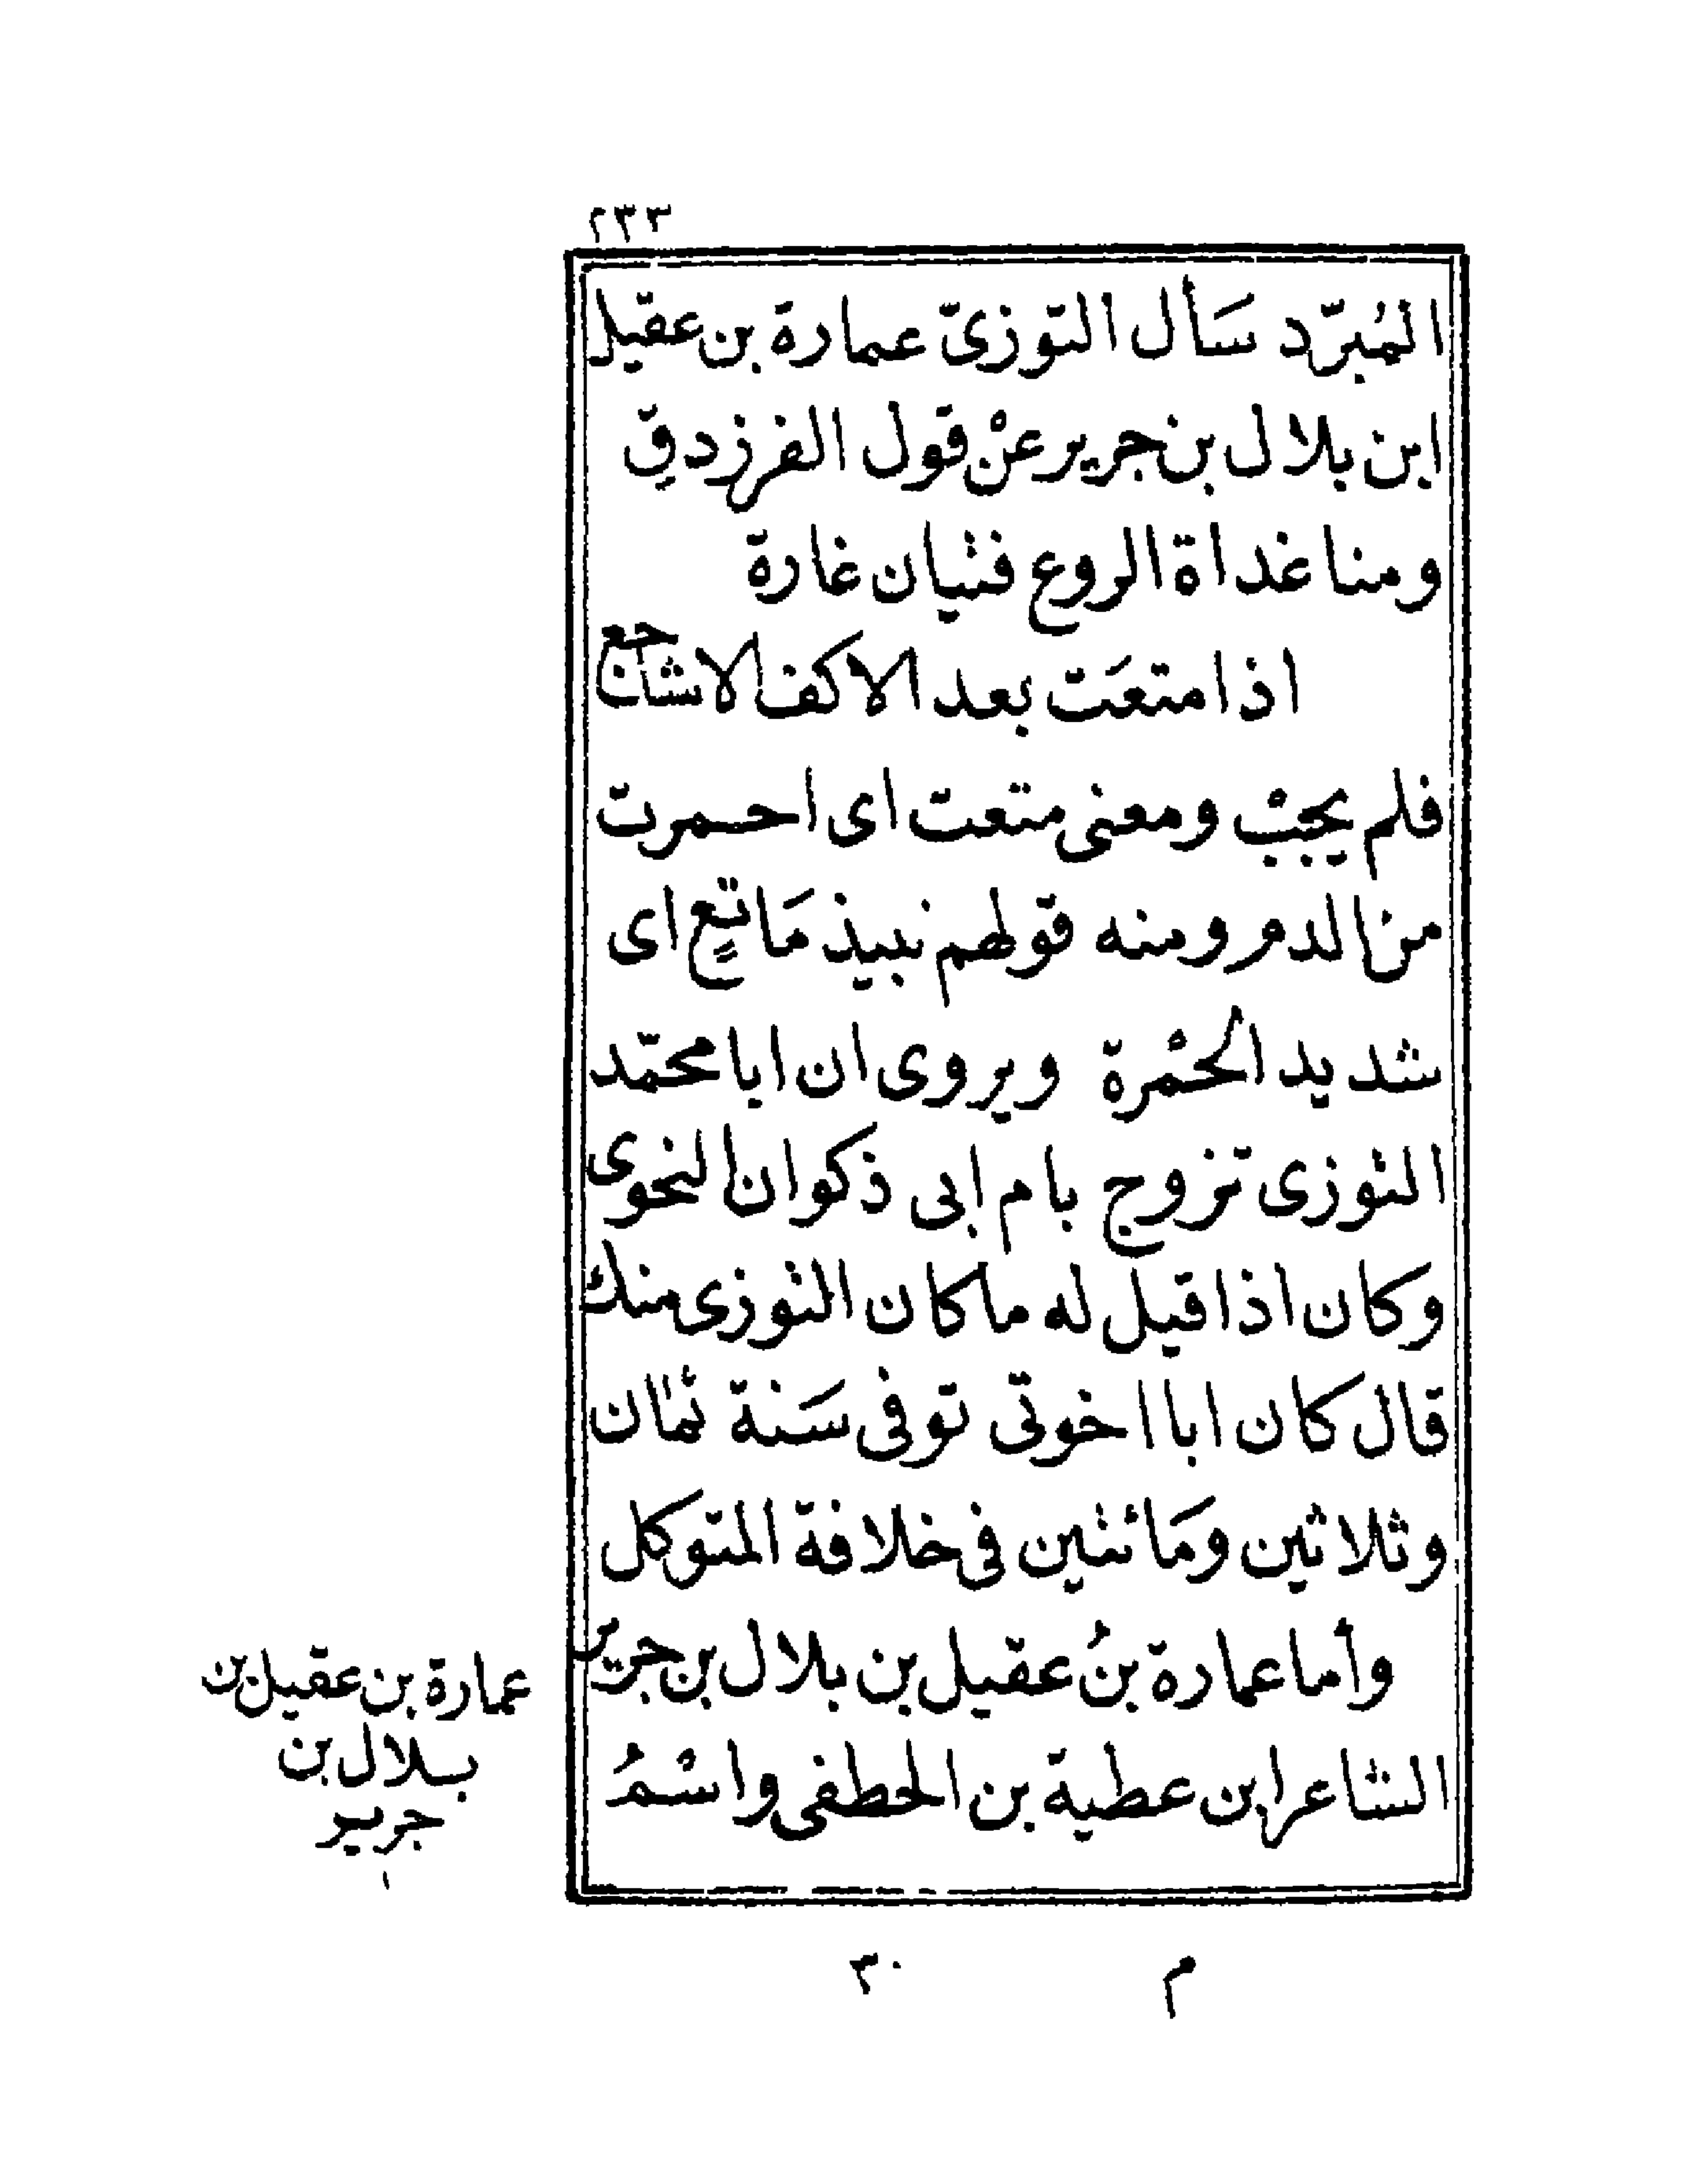 ٢٣٣
المُبَرّد سَأل التوزىّ عمارة بن عقيل
ابن بلال بن جرير عنْ قول الفرزدقِ
ومنا غداة الروع فتيان غارة
اذا متعَت بعد الاكف الاشاجع
فلم يجبْ ومعنى متعت اى احمرت
من الدم ومنه قولهم نبيذ مَاتعٍ اى
شديد الحمْرة ويروى ان ابا محمّد
التوزى تزوج بام ابى ذكوان النحوى
وكان اذا قيل له ما كان التوزى منك
قال كان ابا اخوتى توفى سَنة ثمان
وثلاثين ومَائتين فى خلافة المتوكل
وأما عمارة بنُ عقيل بن بلال بن جرير
الشاعر ابن عطية بن الخطفى واسْمُ
عمارة بن عقيل بن
بلال بن
جرير
م ٣٠